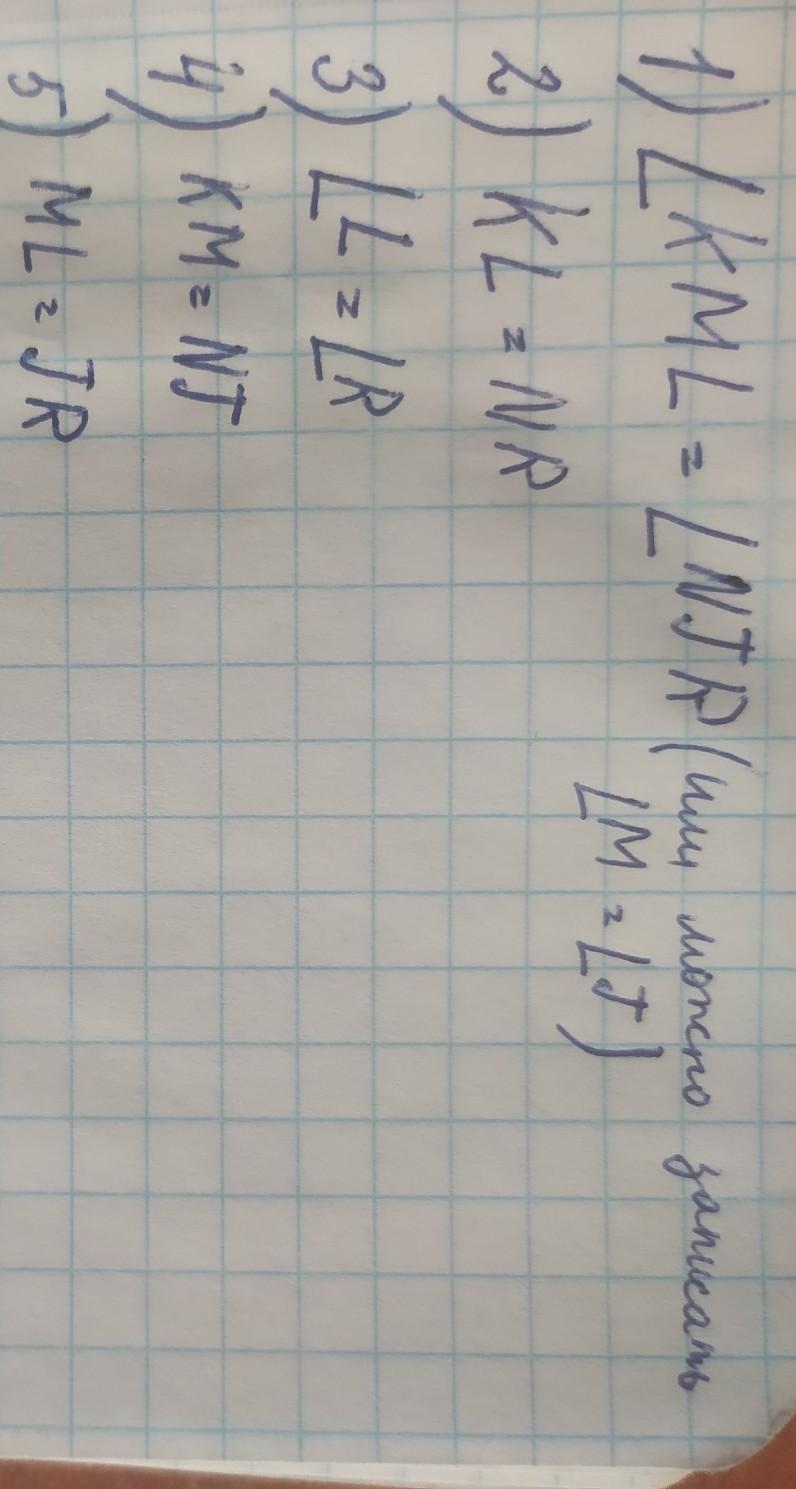 1) ∠KML = ∠NJR (или можно записать
∠M = ∠J)
2) KL = NR
3) ∠L = ∠R
4) KM = NJ
5) ML = JR